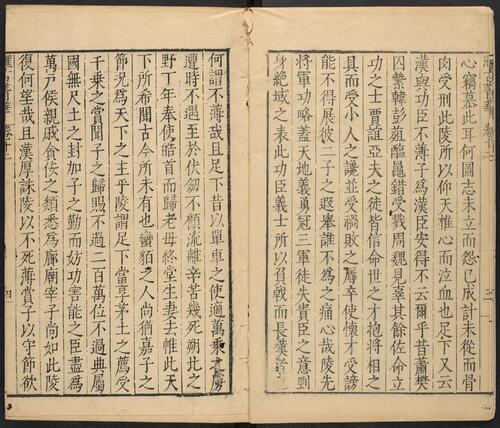 心竊慕此耳何圖志未立而怨已成計未從而骨
肉受刑此陵所以仰天椎心而泣血也足下又云
漢與功臣不薄子爲漢臣安得不云爾乎昔蕭樊
囚縶韓彭葅醢鼂錯受戮周魏見辜其餘佐命立
功之士賈誼亞夫之徒皆信命世之才抱將相之
具而受小人之讒並受禍敗之辱卒使懷才受謗
能不得展彼二子之遐舉誰不爲之痛心哉陵先
將軍功略蓋天地義勇冠三軍徒失貴臣之意剄
身絶域之表此功臣義士所以負戟而長歎者也
何謂不薄哉且足下昔以單車之使適萬乘之虜
遭時不遇至於伏劒不顧流離辛苦幾死朔北之
野丁年奉使皓首而歸老母終堂生妻去帷此天
下所希聞古今所未有也蠻貊之人尚猶嘉子之
節況爲天下之主乎陵謂足下當享茅土之薦受
千乘之賞聞子之歸賜不過二百萬位不過典屬
國無尺土之封加子之勤而妨功害能之臣盡爲
萬戶侯親戚貪佞之類悉爲廊廟宰子尚如此陵
復何望哉且漢厚誅陵以不死薄賞子以守節欲